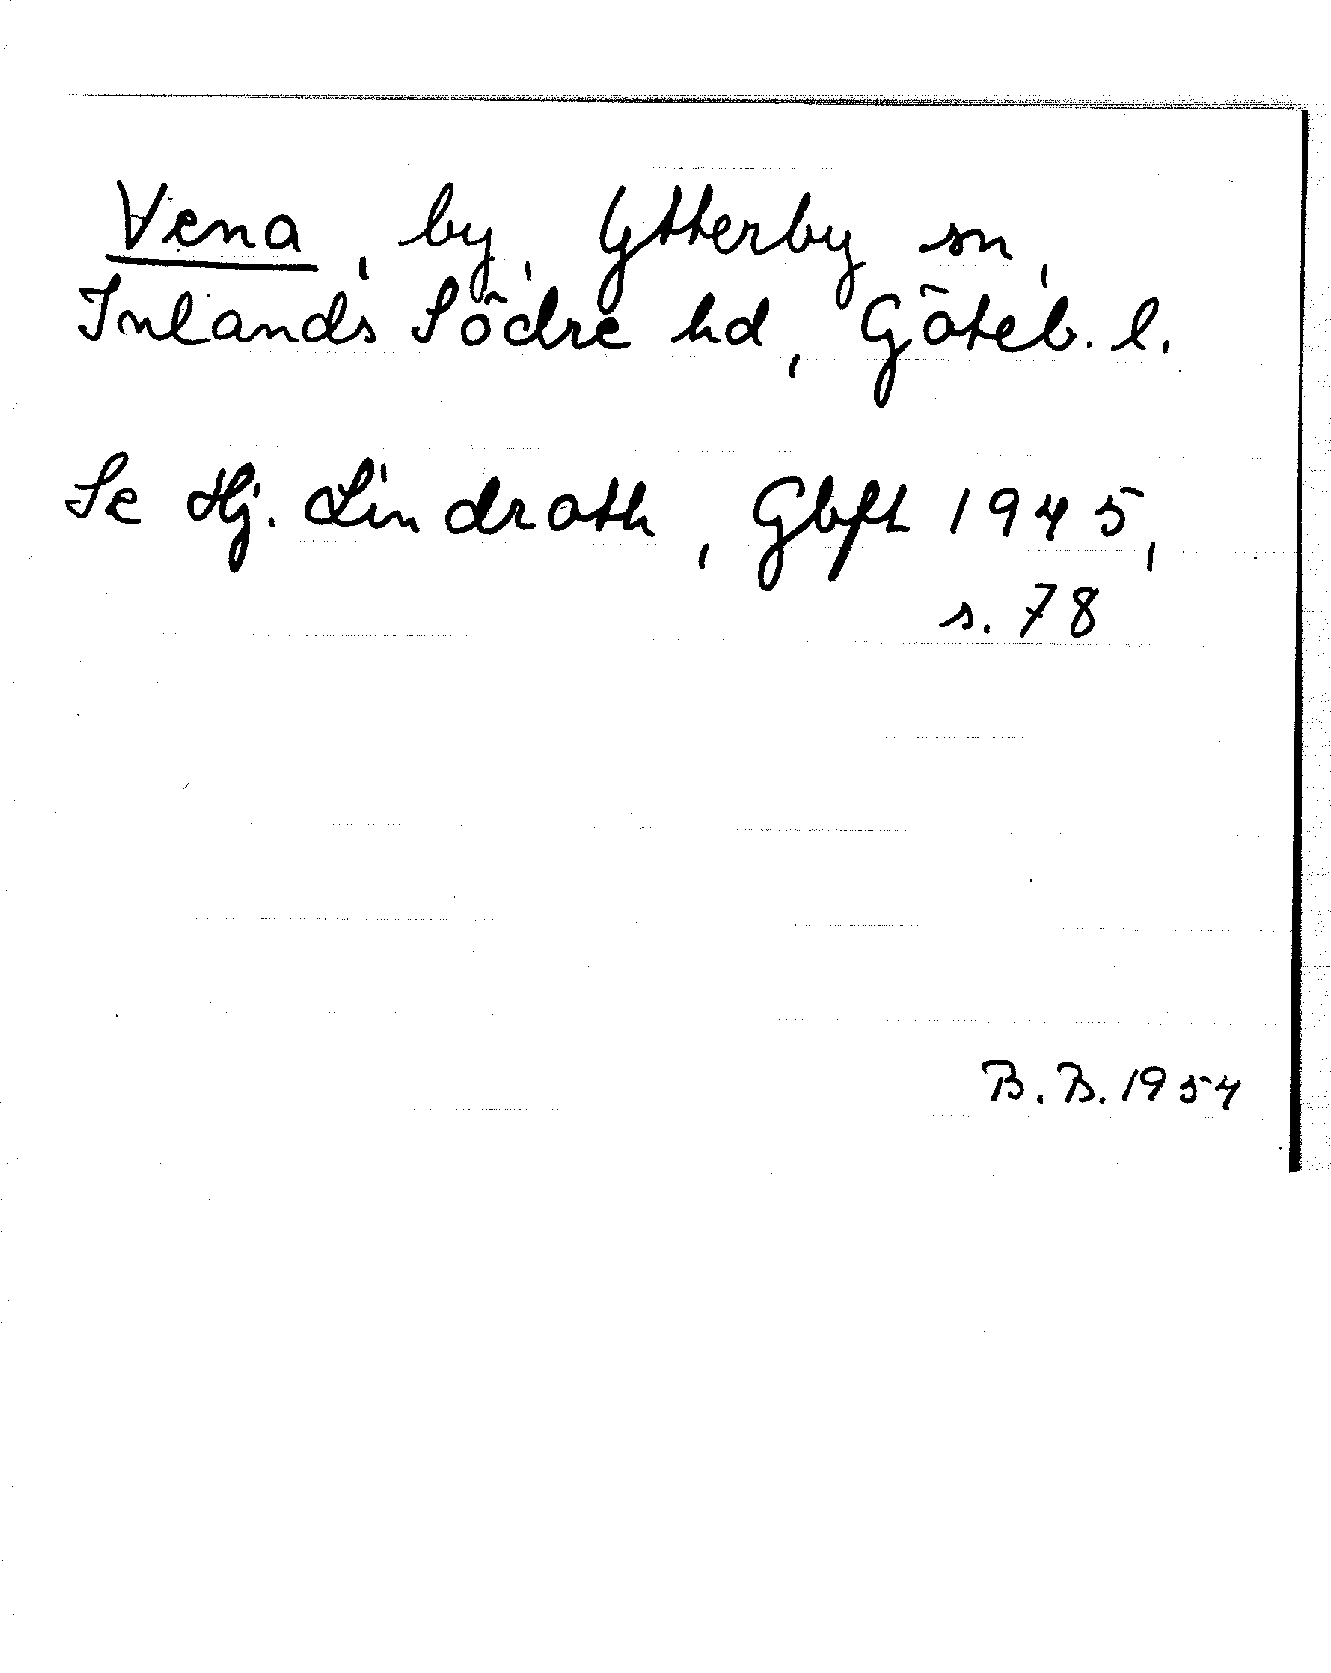 Vena, by, Ytterby sn,
Inlands Södre hd, Göteb. l.
Se Hj. Lindroth, Gbft 1945,
s. 78
B. B. 1954